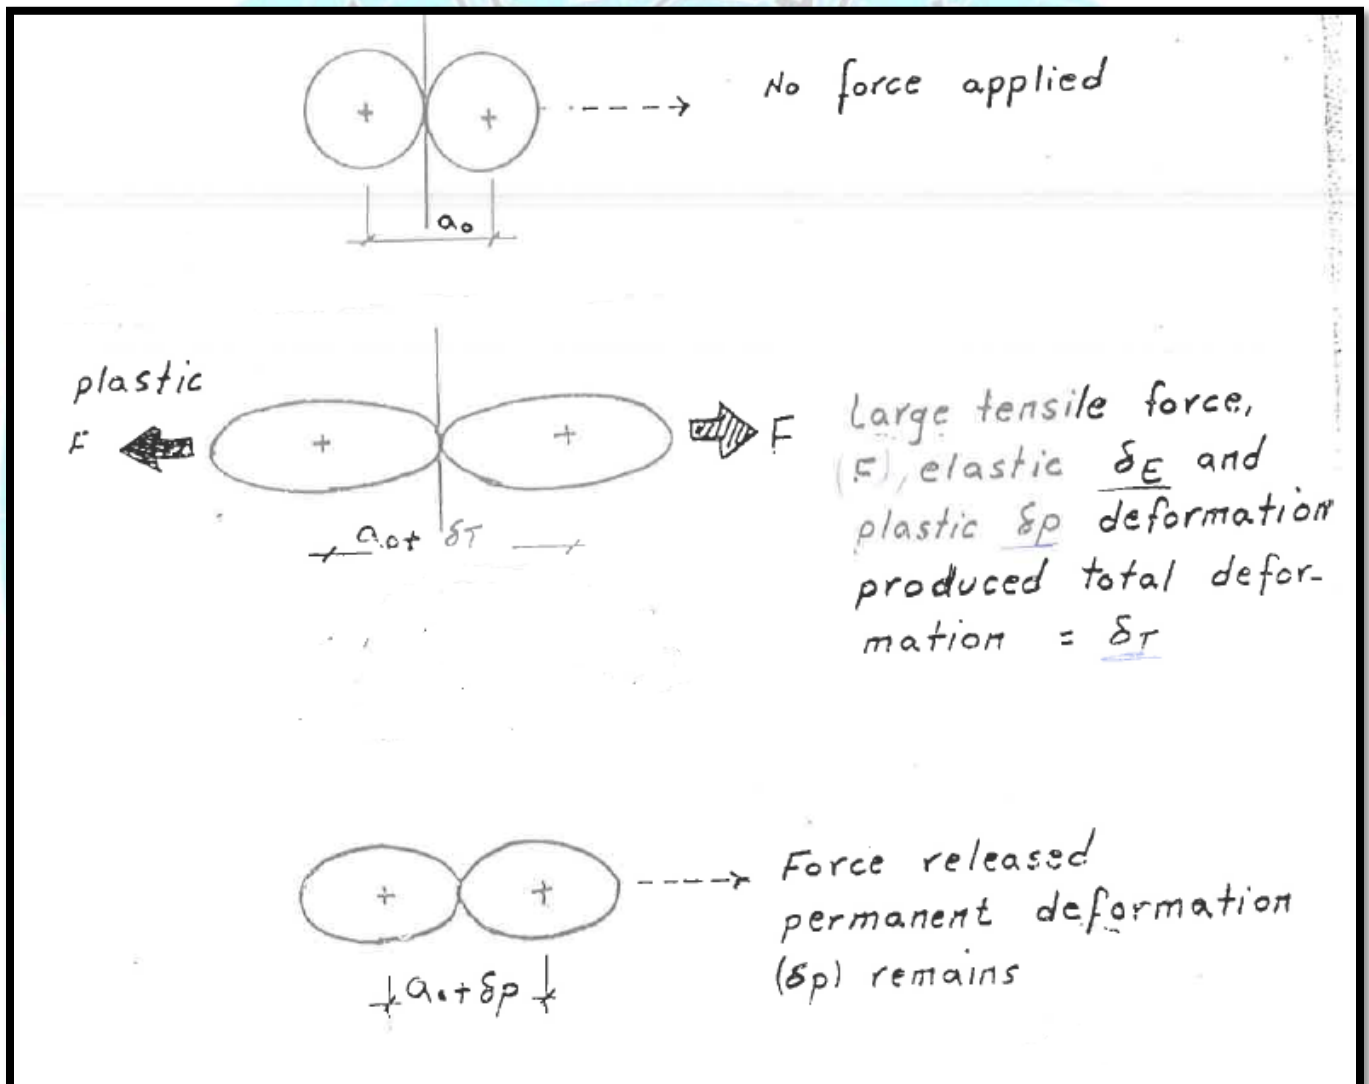 No force applied
a₀
plastic
F
F
Large tensile force,
(F), elastic δE and
plastic δp deformation
produced total defor-
mation = δT
a₀+ δT
Force released
permanent deformation
(δp) remains
a₀+ δp